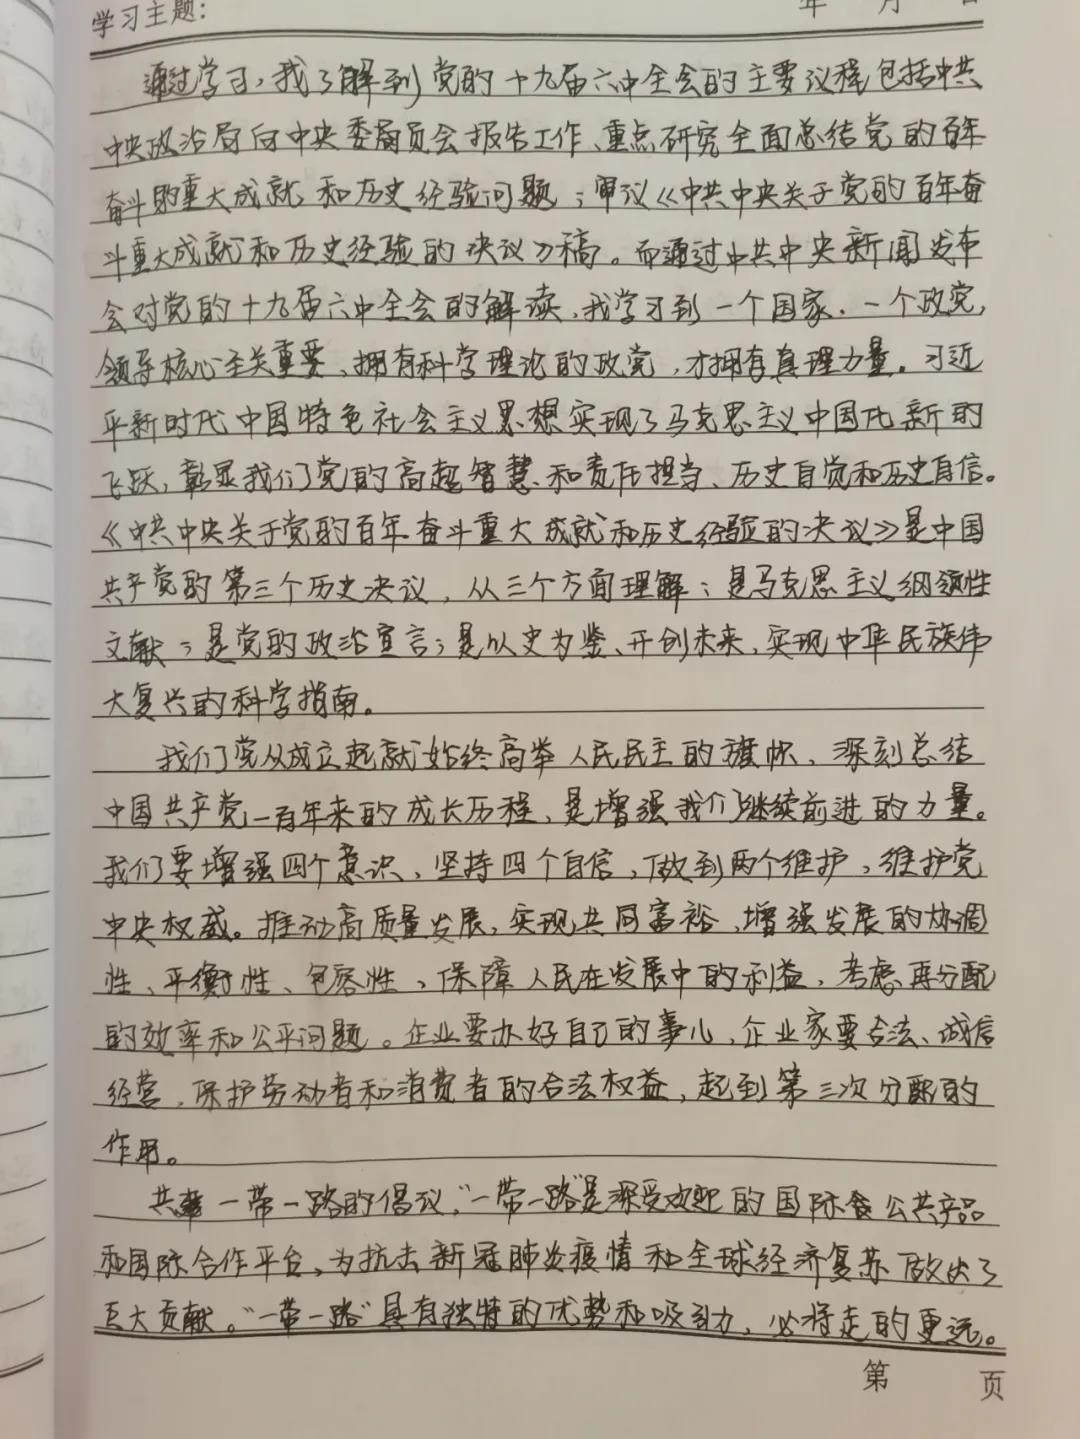 学习主题:
年 月 日
通过学习,我了解到党的十九届六中全会的主要议程包括中共
中央政治局向中央委员会报告工作、重点研究全面总结党的百年
奋斗的重大成就和历史经验问题;审议《中共中央关于党的百年奋
斗重大成就和历史经验的决议》稿。而通过中共中央新闻发布
会对党的十九届六中全会的解读,我学习到一个国家、一个政党,
领导核心至关重要,拥有科学理论的政党,才拥有真理力量。习近
平新时代中国特色社会主义思想实现了马克思主义中国化新的
飞跃,彰显我们党的高超智慧和责任担当、历史自觉和历史自信。
《中共中央关于党的百年奋斗重大成就和历史经验的决议》是中国
共产党的第三个历史决议,从三个方面理解:是马克思主义纲领性
文献;是党的政治宣言;是以史为鉴、开创未来、实现中华民族伟
大复兴的科学指南。
我们党从成立起就始终高举人民民主的旗帜,深刻总结
中国共产党一百年来的成长历程,是增强我们继续前进的力量。
我们要增强四个意识,坚持四个自信,做到两个维护,维护党
中央权威。推动高质量发展,实现共同富裕,增强发展的协调
性、平衡性、包容性,保障人民在发展中的利益,考虑再分配
的效率和公平问题。企业要办好自己的事儿,企业家要合法、诚信
经营,保护劳动者和消费者的合法权益,起到第三次分配的
作用。
共建一带一路的倡议,“一带一路”是深受欢迎的国际公共产品
和国际合作平台,为抗击新冠肺炎疫情和全球经济复苏做出了
巨大贡献。“一带一路”具有独特的优势和吸引力,必将走的更远。
第 页